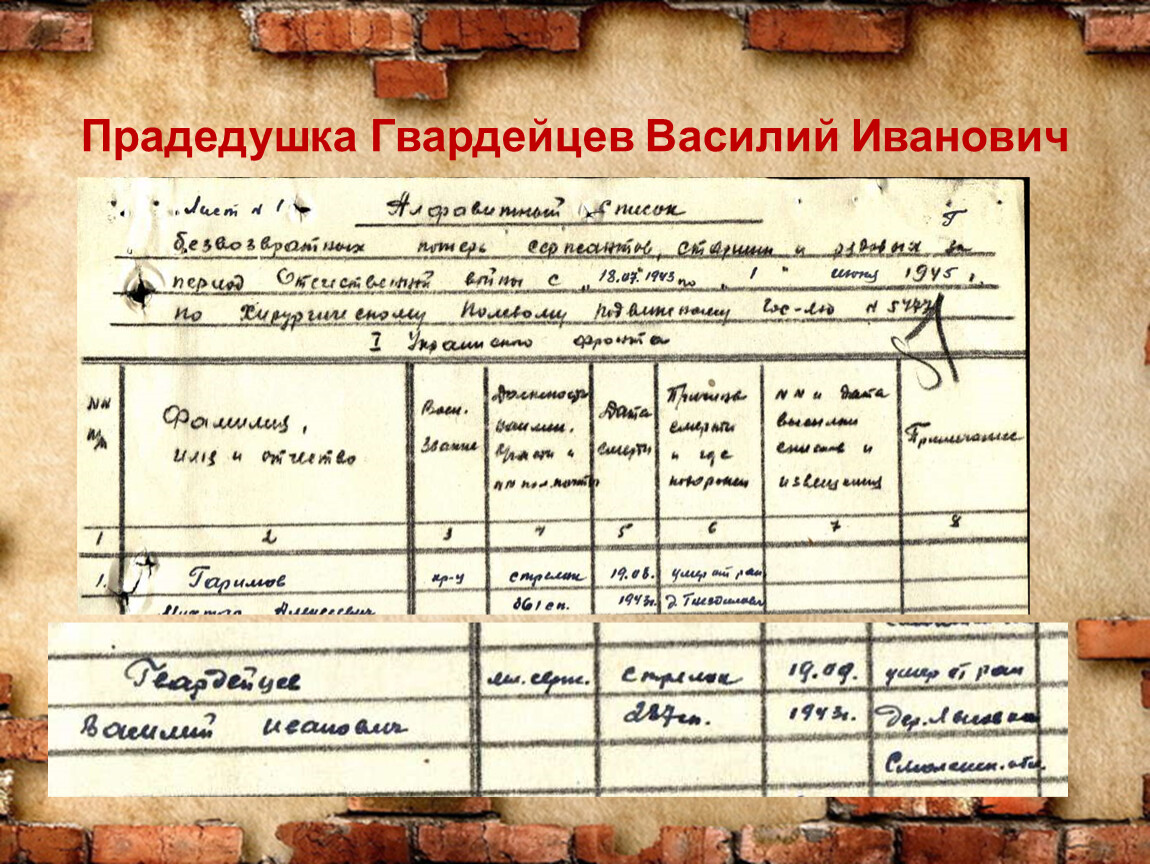 Прадедушка Гвардейцев Василий Иванович
Лист N 1
Алфавитный список
Г
безвозвратных потерь сержантов, старшин и рядовых за
период Отечественной войны с "18.07."1943 по "1" июня 1945 г.
по Хирургическому Полевому Подвижному Гос-лю N 5777
I Украинского фронта
NN п/п
Фамилия,
имя и отчество
Воен. звание
Должность наимен. части и NN пол. почты
Дата смерти
Причина смерти и где похоронен
NN и дата высылки списков и извещения
Примечание
1 2 3 4 5 6 7 8
1. Гаримов кр-ц стрелок 19.08. умер от ран
Алексеевич 861 сп. 1943г.
Гвардейцев мл. серж. стрелок 19.09. умер от ран
Василий Иванович 287 сп. 1943г. Дер.
Смоленск. обл.